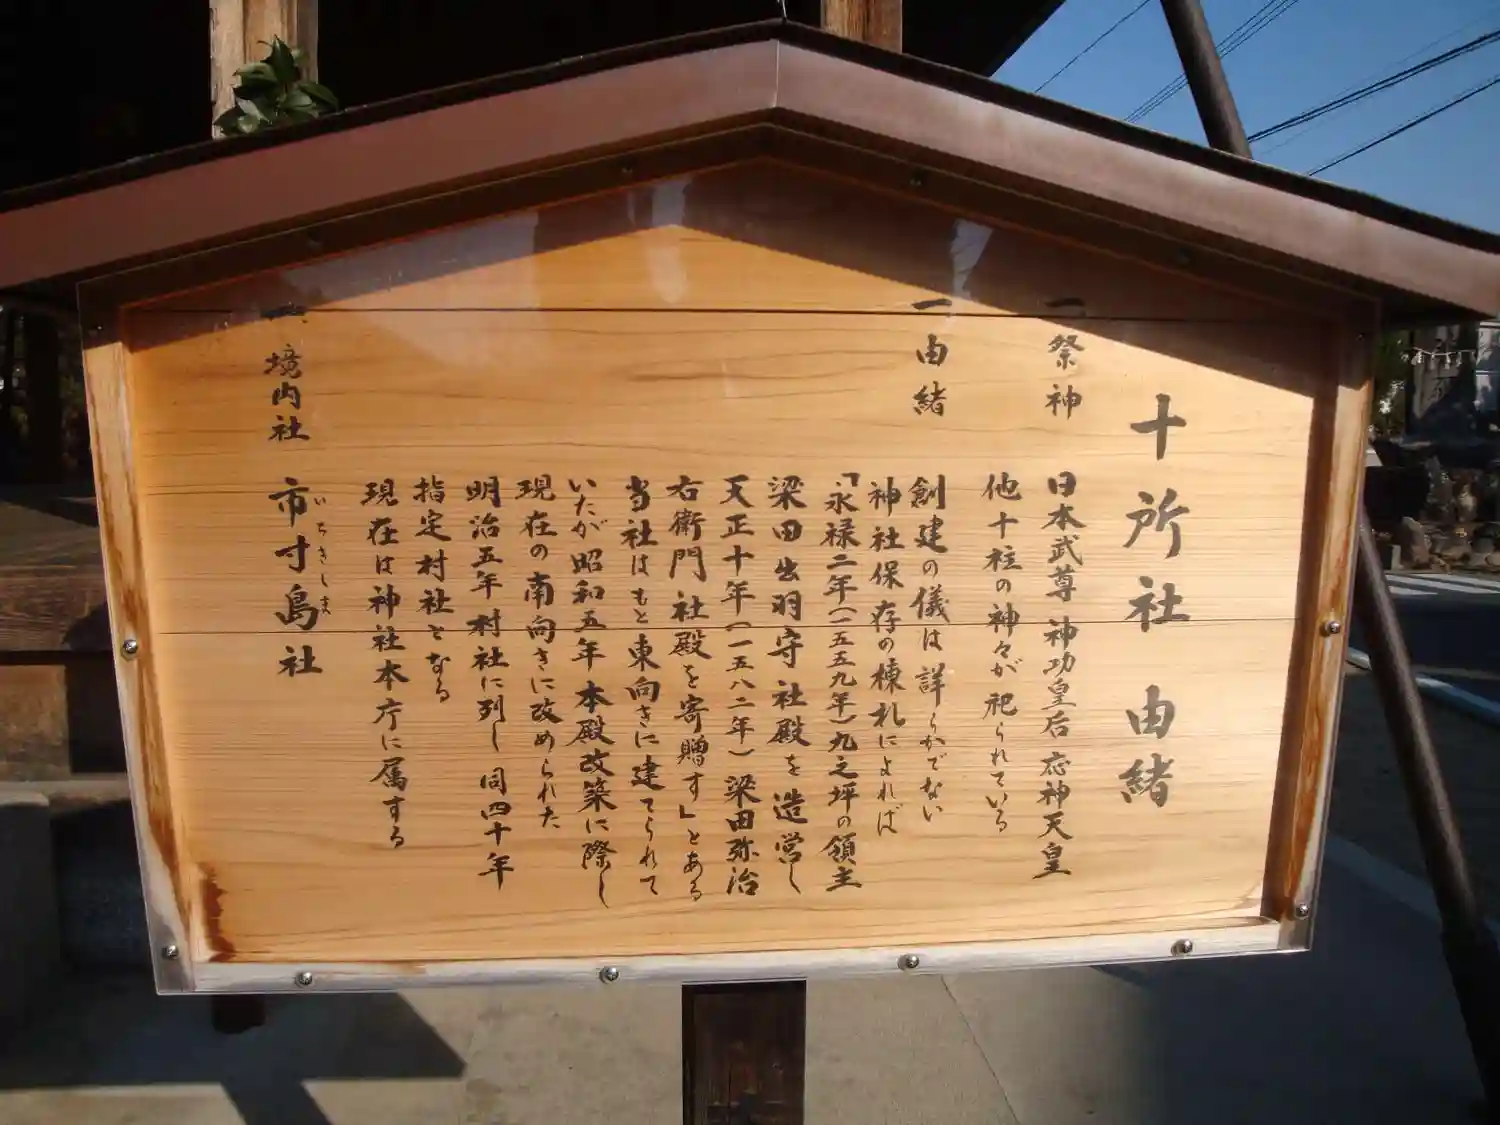 十所社 由緒
一 祭神
日本武尊 神功皇后 応神天皇
他十柱の神々が祀られている
一 由緒
創建の儀は詳らかでない
神社保存の棟札によれば
「永禄二年(一五五九年)九之坪の領主
梁田出羽守社殿を造営し
天正十年(一五八二年)梁田弥治
右衛門社殿を寄贈す」とある
当社はもと東向きに建てられて
いたが昭和五年本殿改築に際し
現在の南向きに改められた
明治五年村社に列し 同四十年
指定村社となる
現在は神社本庁に属する
一 境内社 市寸島社
いちきしま